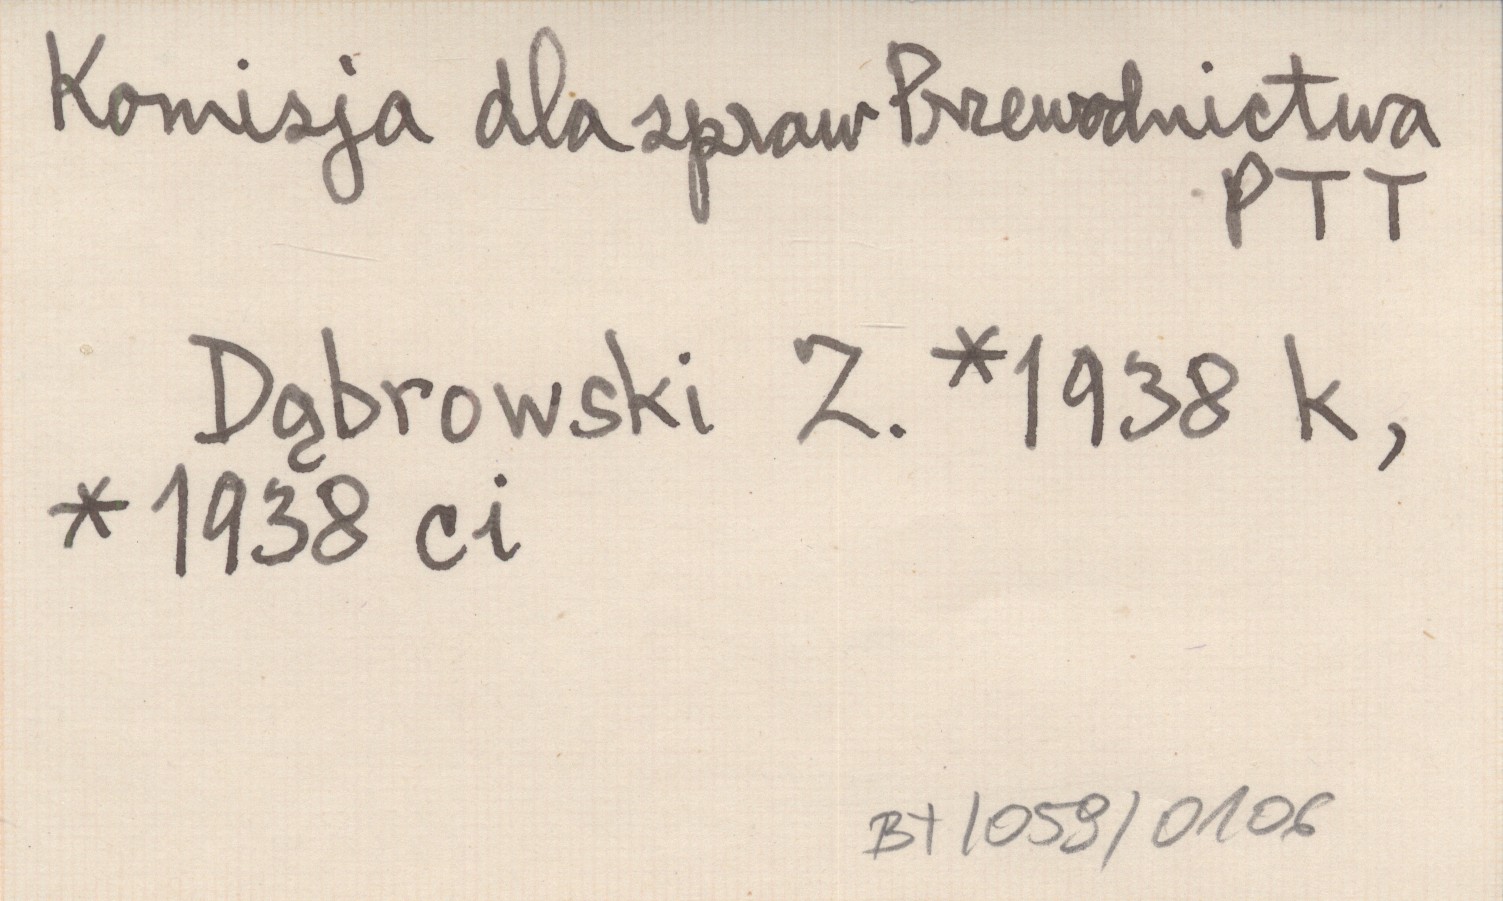 Komisja dla spraw Przewodnictwa
PTT
Dąbrowski Z. *1938 k,
*1938 ci
BT/059/0106